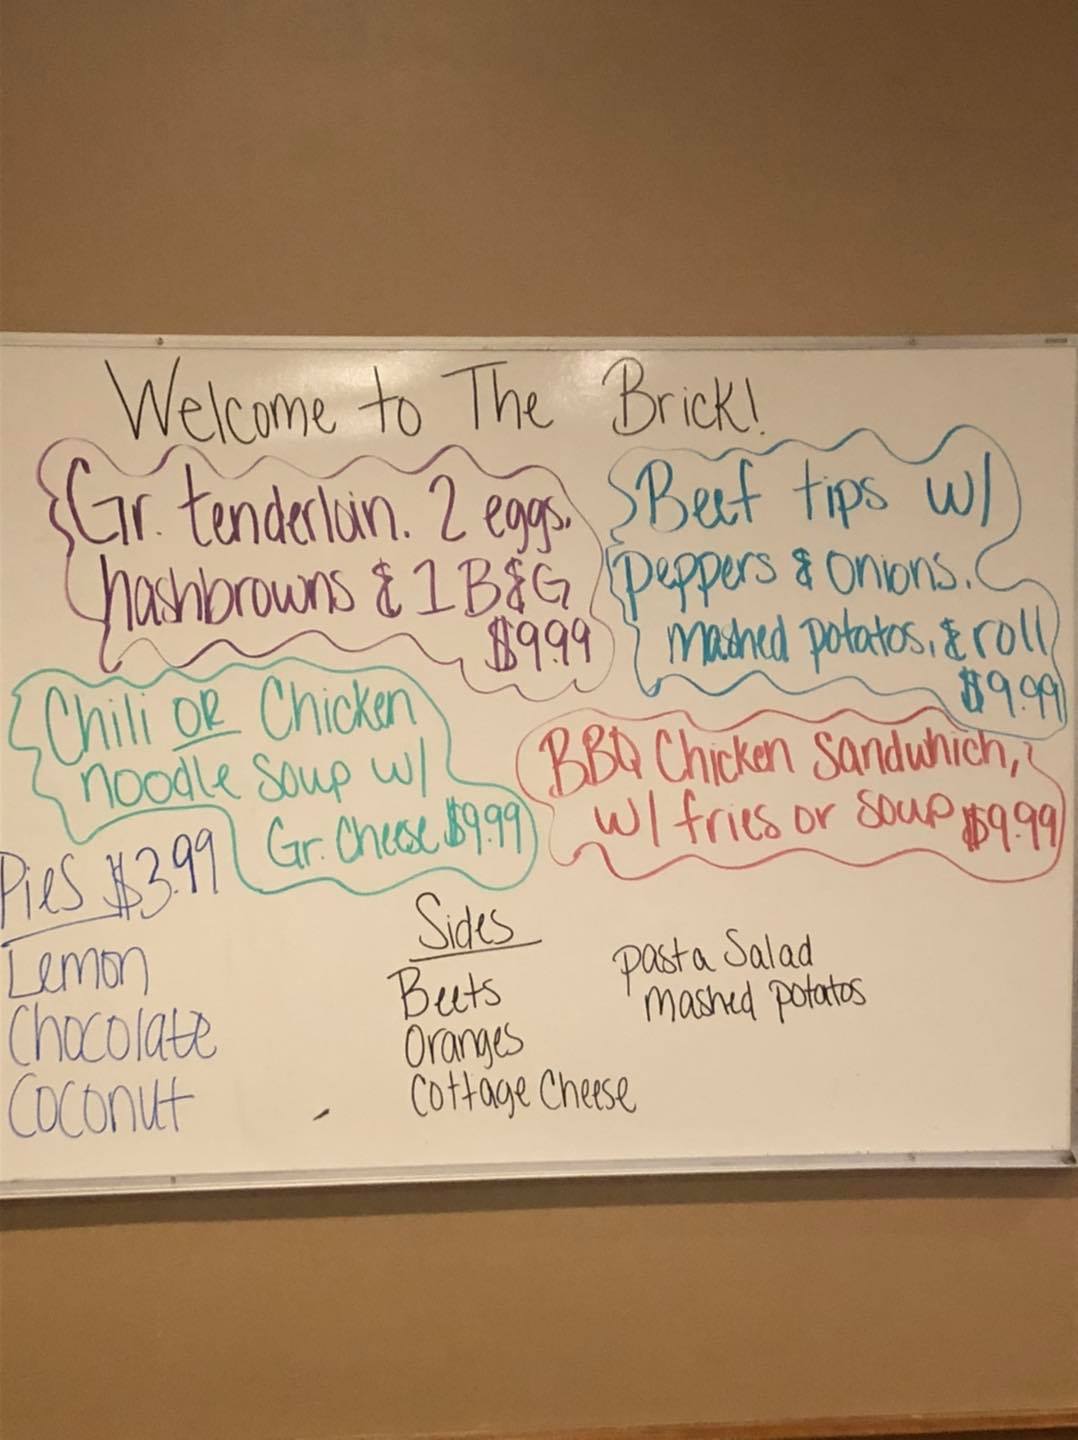 Welcome to The Brick!
Gr. tenderloin. 2 eggs.
hashbrowns & 1 B&G
$9.99
Beef tips w/
peppers & onions.
mashed potatos, & roll
$9.99
Chili OR Chicken
noodle soup w/
Gr. Cheese $9.99
BBQ Chicken Sandwhich,
w/ fries or soup $9.99
Pies $3.99
Lemon
Chocolate
Coconut
Sides
Beets
Oranges
Cottage Cheese
pasta Salad
mashed potatos